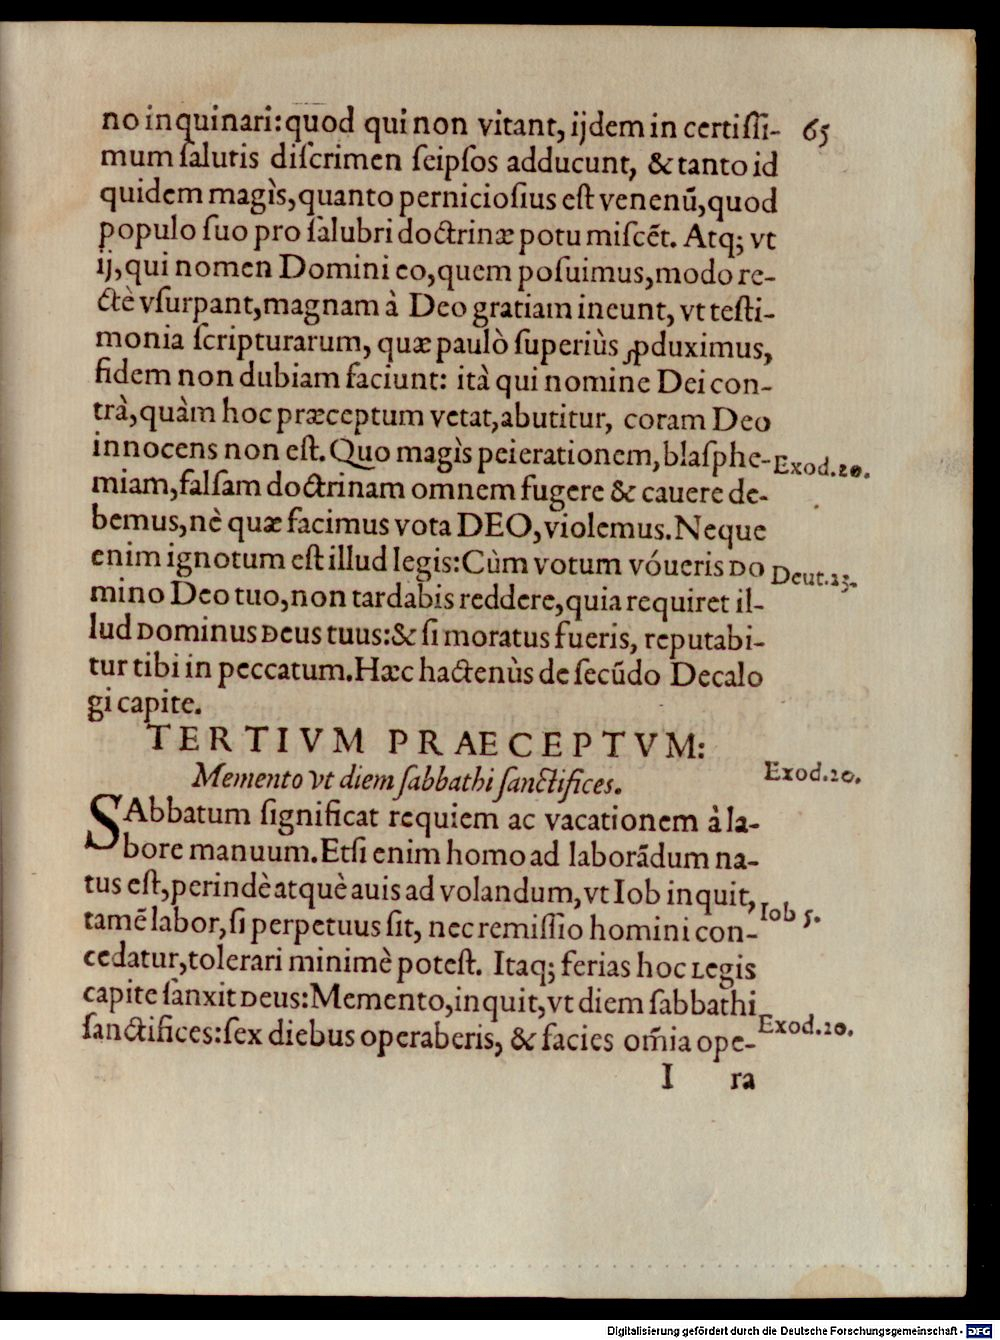 no inquinari: quod qui non vitant, ijdem in certiſſi- 65
mum ſalutis diſcrimen ſeipſos adducunt, & tanto id
quidem magìs, quanto pernicioſius eſt venenũ, quod
populo ſuo pro ſalubri doctrinæ potu miſcẽt. Atq; vt
ij, qui nomen Domini eo, quem poſuimus, modo re-
ctè vſurpant, magnam à Deo gratiam ineunt, vt teſti-
monia ſcripturarum, quæ paulò ſuperiùs ꝓduximus,
fidem non dubiam faciunt: ità qui nomine Dei con-
trà, quàm hoc præceptum vetat, abutitur, coram Deo
innocens non eſt. Quo magìs peierationem, blaſphe- Exod.20.
miam, falſam doctrinam omnem fugere & cauere de-
bemus, nè quæ facimus vota DEO, violemus. Neque
enim ignotum eſt illud legis: Cùm votum vóueris DO Deut.23.
mino Deo tuo, non tardabis reddere, quia requiret il-
lud Dominus Deus tuus: & ſi moratus fueris, reputabi-
tur tibi in peccatum. Hæc hactenùs de ſecũdo Decalo
gi capite.
TERTIVM PRAECEPTVM:
Memento vt diem ſabbathi ſanctifices. Exod.20.
SAbbatum ſignificat requiem ac vacationem à la-
bore manuum. Etſi enim homo ad laborãdum na-
tus eſt, perindè atquè auis ad volandum, vt Iob inquit, Iob 5.
tamẽ labor, ſi perpetuus ſit, nec remiſſio homini con-
cedatur, tolerari minimè poteſt. Itaq; ferias hoc Legis
capite ſanxit Deus: Memento, inquit, vt diem ſabbathi
ſanctifices: ſex diebus operaberis, & facies om̃ia ope- Exod.20.
I ra
Digitalisierung gefördert durch die Deutsche Forschungsgemeinschaft - DFG